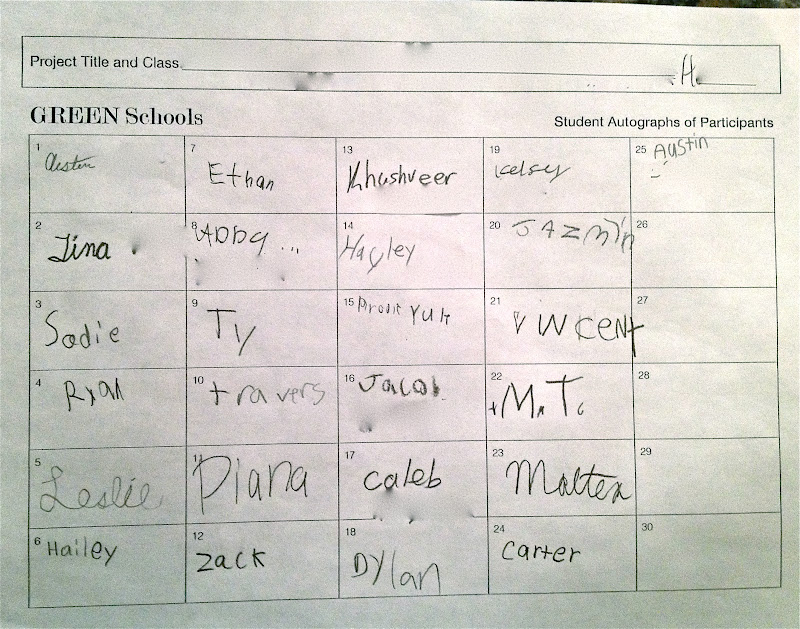 Project Title and Class
GREEN Schools
Student Autographs of Participants
1
7 Ethan
13 Khushveer
19 Kelsey
25 Austin
2 Tina
8 Abby ...
14 Hayley
20 JAZmin
26
3 Sadie
9 Ty
15
21 VINCENT
27
4 Ryan
10 travers
16 Jacob
22 Mr. T.
28
5 Leslie
11 Diana
17 caleb
23
29
6 Hailey
12 zack
18 Dylan
24 carter
30